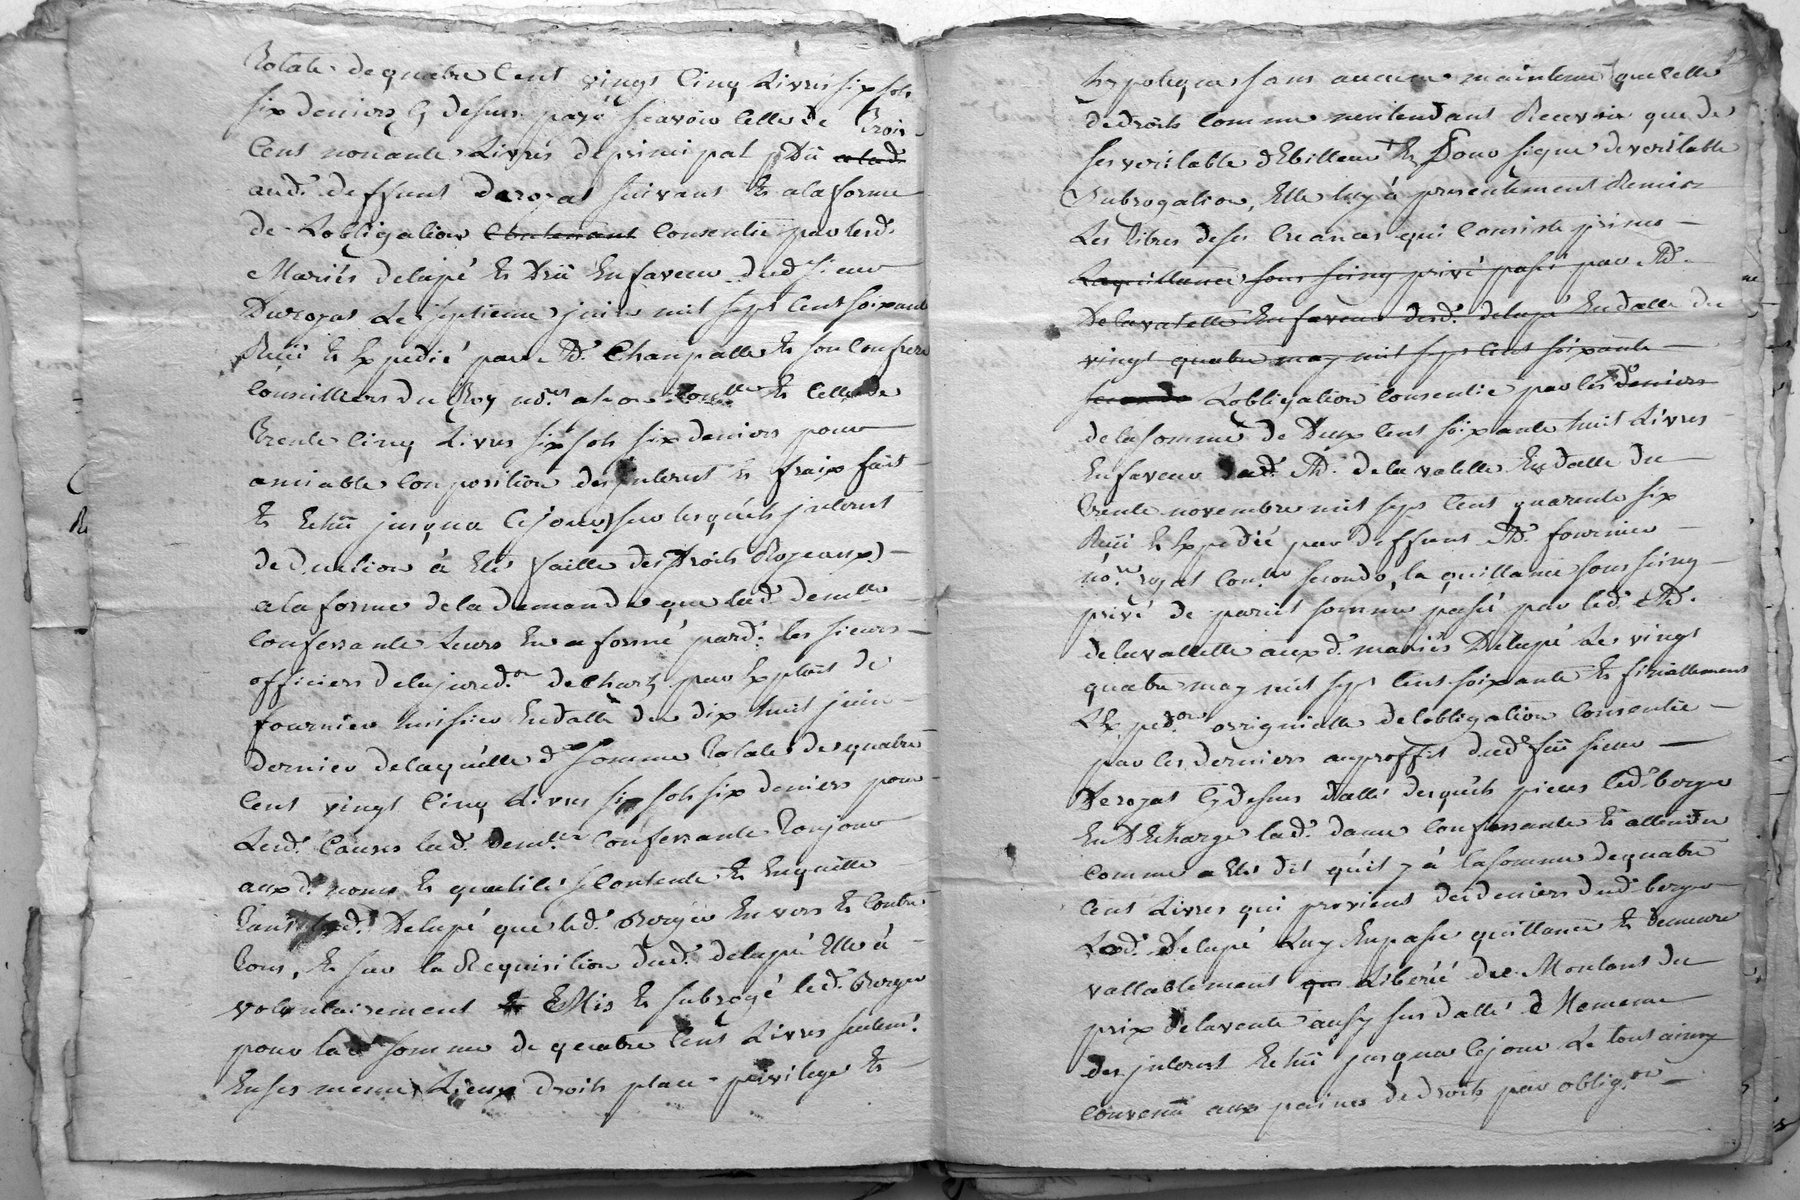 totale de quatre cent vingt cinq Livres six sols
six deniers cy desus payé scavoir celle de trois
cent nonante Livres de principal dû a lad.
aud. deffunt Derozat suivant et a la forme
de Lobligation contenant consentie par lesd.
Mariés delupé et Drü en faveur dud. sieur
Derozat Le septieme juin mil sept cent soixante
Recü et Expedié par Md. Champalle et son confrere
conseillers du Roy et celle de
trente cinq Livres six sols six deniers pour
amiable composition des jnterest et fraix fait
et Echû jusqua ce jour, sur lesquels jnterest
deduction à Eté faitte des Droits Royeaux
a la forme de la demande que lad. demlle
confessante Leurs En a formé pard. les sieurs
officiers de la jured.on de par Exploit de
fournier huissier En datte du dix huit juin
dernier de laquelle d. somme totale des quatre
cent vingt cinq Livres six sols six deniers pour
Lesd. causes lad. demlle confessante toujour
auxd. noms et qualités se contente et En quitte
tant led. Delupé que led. Berger Envers et contre
tous, Et sur la Requisition dud. delupé Elle à
volontairement Mis et subrogé led. Berger
pour lad. somme de quatre cent Livres seulemt.
En ses meme Lieux droits place privilege et
hypoteques sans aucune maintenue que celle
de droits comme nentendant Recevoir que de
ses veritable debiteur Et pour signe de veritable
Subrogation, Elle luy à presentement Remis
Les titres de ses creances qui consiste primo
La quittance sous seing privé passé par Md.
Delavalette En faveur desd. delupé En datte du
vingt quatre may mil sept cent soixante
secondo Lobligation consentie par les derniers
de la somme de Deux cent soixante huit Livres
En faveur dud. Md. de la valette En datte du
trente novembre mil sept cent quarente six
Recü et Expedié par deffunt Md. fournier
no.re royal secondo, la quittance sous seing
privé de pareil somme passé par led. Md.
delavallette auxd. mariés Delupé Le vingt
quatre may mil sept cent soixante et finallement
LExped.on orriginalle de lobligation consentie
par les derniers au proffit dud. feü sieur
Derozat cy desus datté desquels pieces led. berger
En Decharge lad. dame confessante Et attendu
comme a Eté dit quil y à la somme de quatre
cent Livres qui provient des deniers dud. berger
Led. Delupé Luy En passe quittance et demeure
vallablement que Liberé du Montant du
prix de la vente ausy sus datté Meme
des jnterest Echû jusqua ce jour Le tout ainsy
convenü aux peines de droits par oblig.on